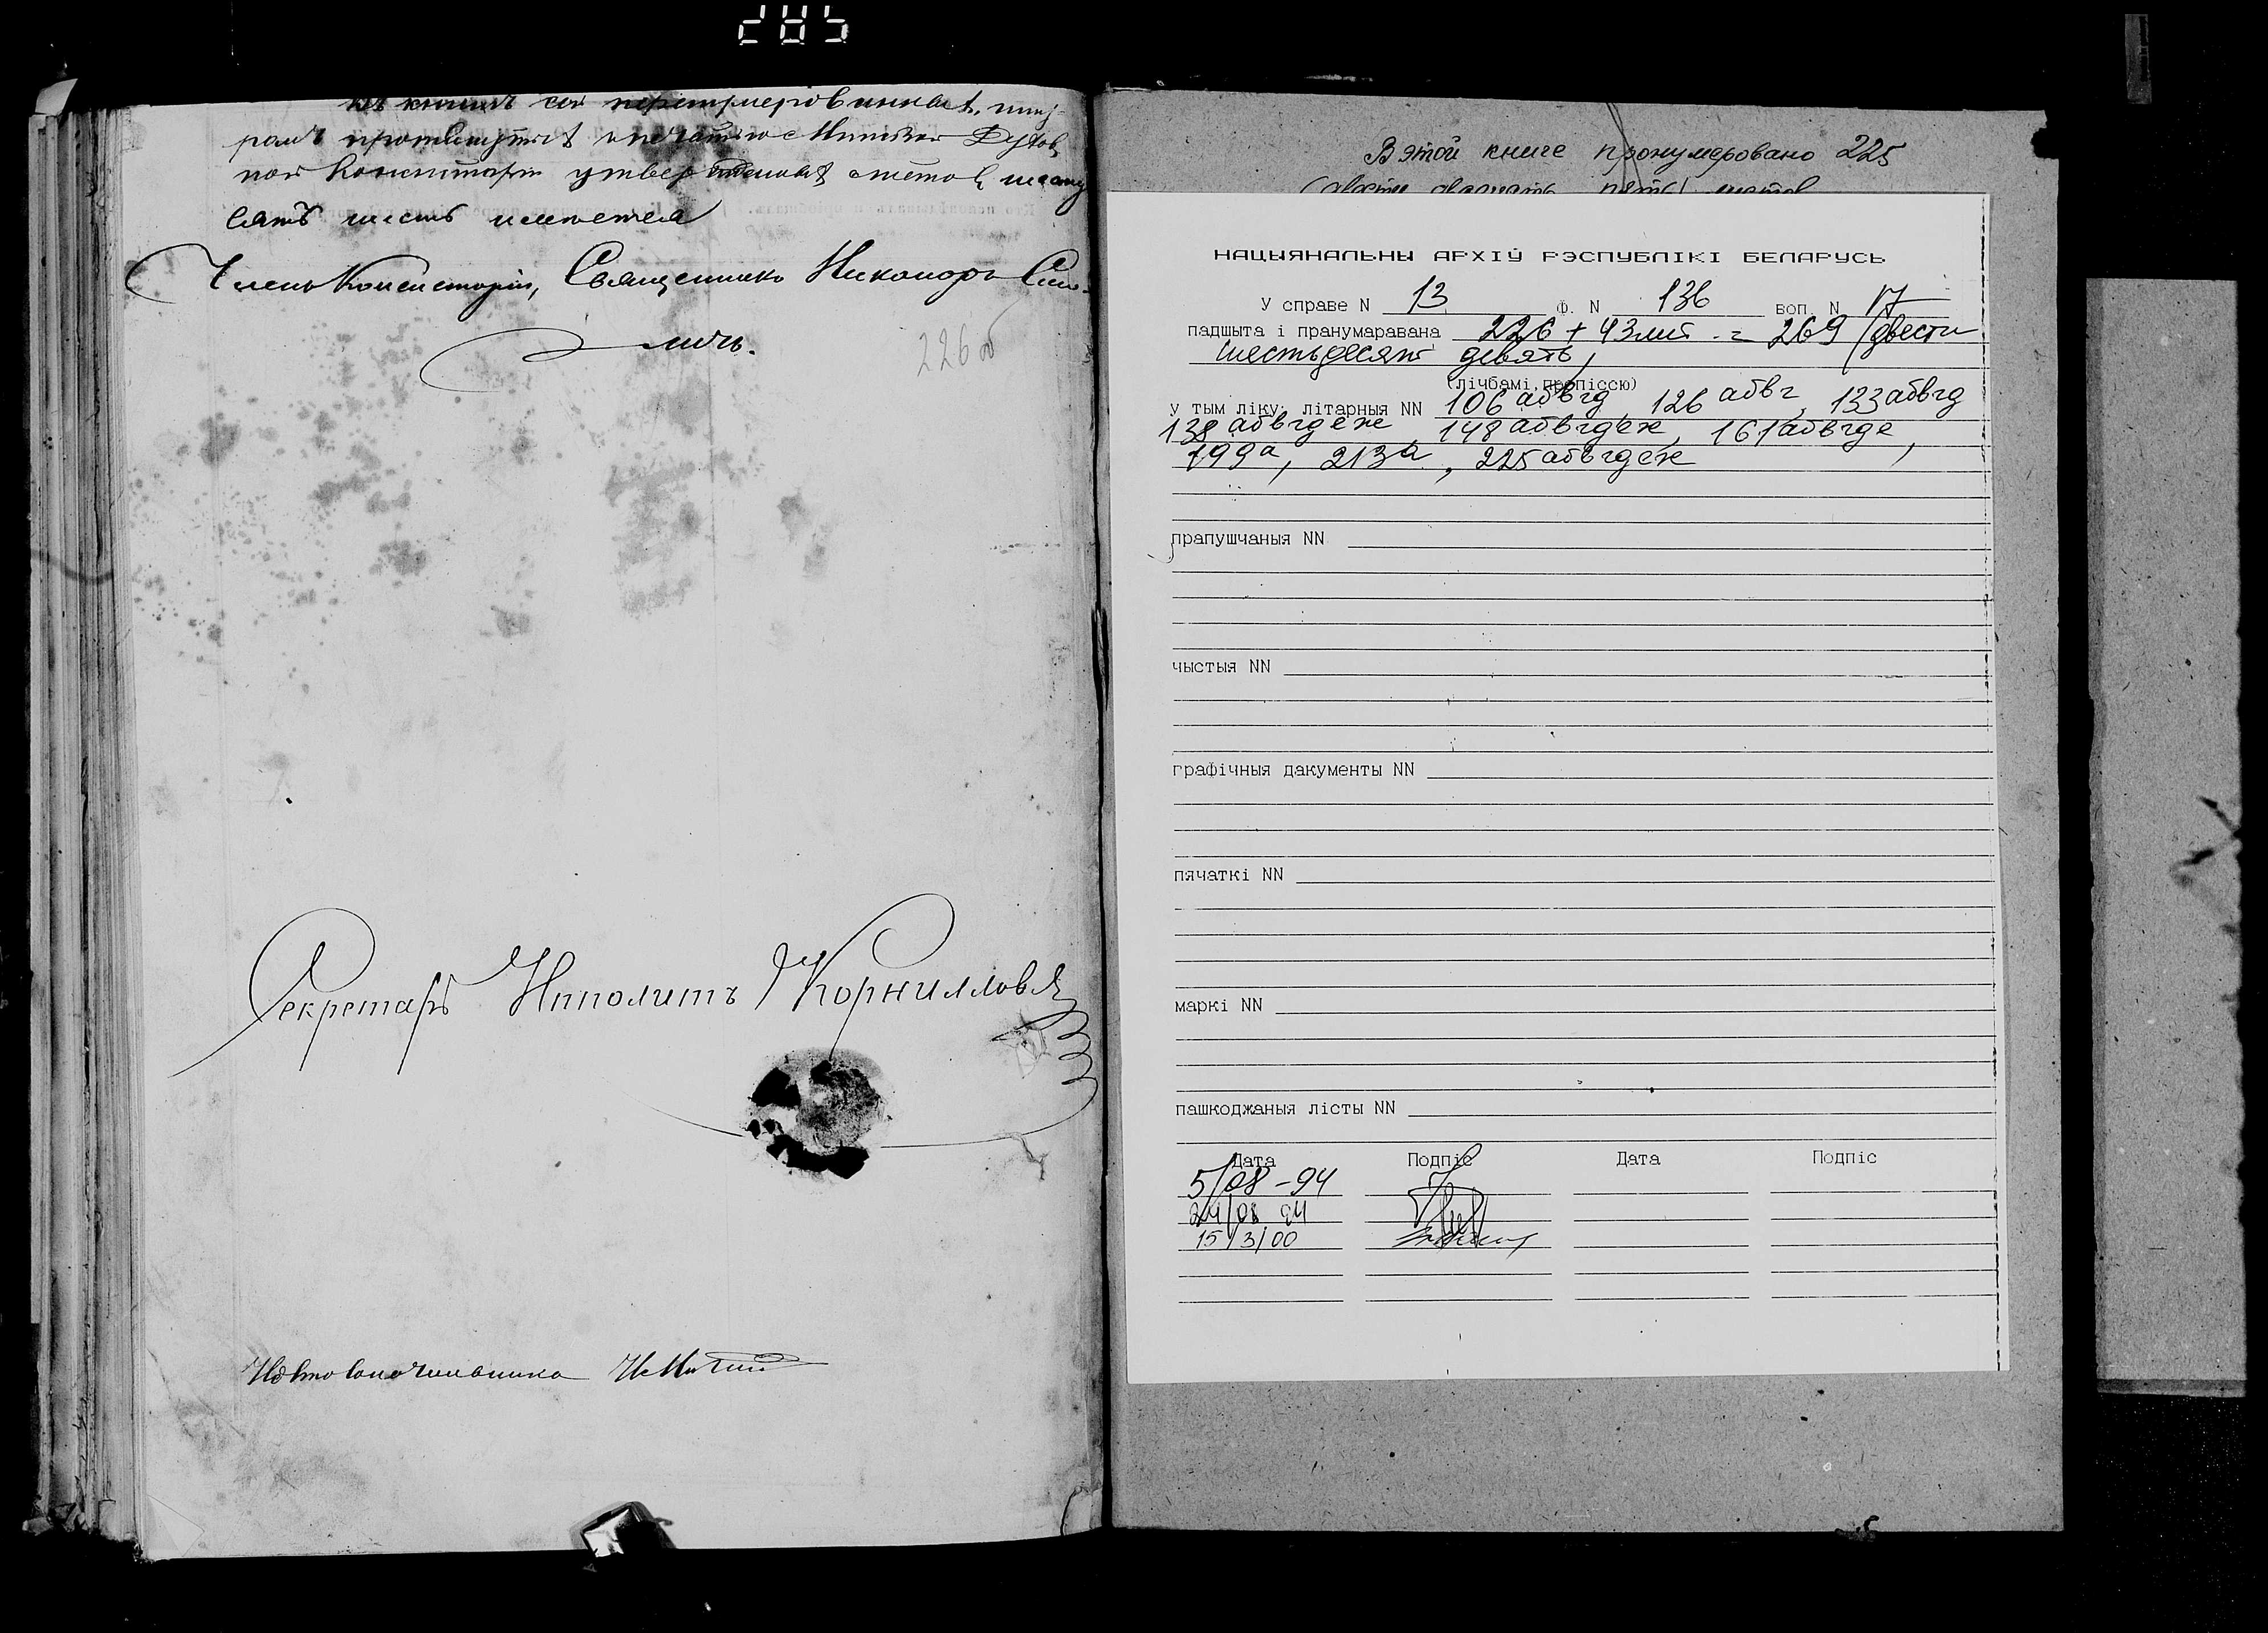 285
въ книгѣ сей перенумерованныхъ, шну-
ромъ протянутыхъ и печатью Минской Духов-
ной Консисторіи утвержденныхъ листовъ
сятъ шесть имѣется
Членъ Консисторіи, Священникъ Никаноръ Сми-
личъ.
226 об
Секретарь Ипполитъ Корниловъ
Столоначальника
В этой книге пронумеровано 225
(двести двадцать пять) листов
НАЦЫЯНАЛЬНЫ АРХІЎ РЭСПУБЛІКІ БЕЛАРУСЬ
У справе N 13 Ф. N 136 воп. N 17
падшыта і пранумаравана 226 + 43 лит. = 269 (двести
шестьдесят девять)
(лічбамі, пропіссю)
у тым ліку: літарныя NN 106 абвгд, 126 абвг, 133 абвгд
138 абвгдеж, 148 абвгдеж, 161 абвгде,
199а, 213а, 225 абвгдеж
прапушчаныя NN
чыстыя NN
графічныя дакументы NN
пячаткі NN
маркі NN
пашкоджаныя лісты NN
Дата Подпіс Дата Подпіс
5/08-94
24/08 94
15/3/00